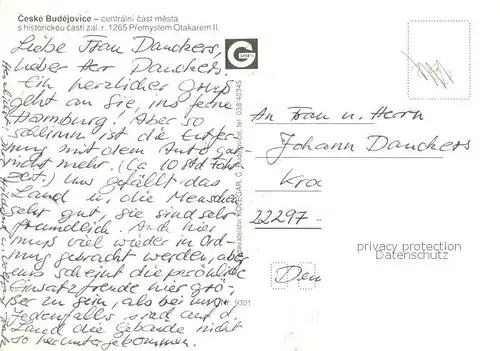 České Budějovice – centrální část města
s historickou částí zal. r. 1265 Přemyslem Otakarem II.
Liebe Frau Danckers,
lieber Herr Danckers!
Ein herzlicher Gruß
geht an Sie, ins ferne
Hamburg! Aber so
schlimm ist die Entfer-
nung mit dem Auto gar
nicht mehr. (Ca 10 Std Fahr-
zeit.) uns gefällt das
Land u. die Menschen
sehr gut, sie sind sehr
freundlich. Auch hier
muß viel wieder in Ord-
nung gebracht werden, aber
uns scheint die persönliche
Einsatzfreude hier grö-
ßer zu sein, als bei uns.
Jedenfalls sind auf d.
Land die Gebäude nicht
so heruntergekommen.
An Frau u. Herrn
Johann Danckers
Kro
22297
Den
privacy protection
Datenschutz